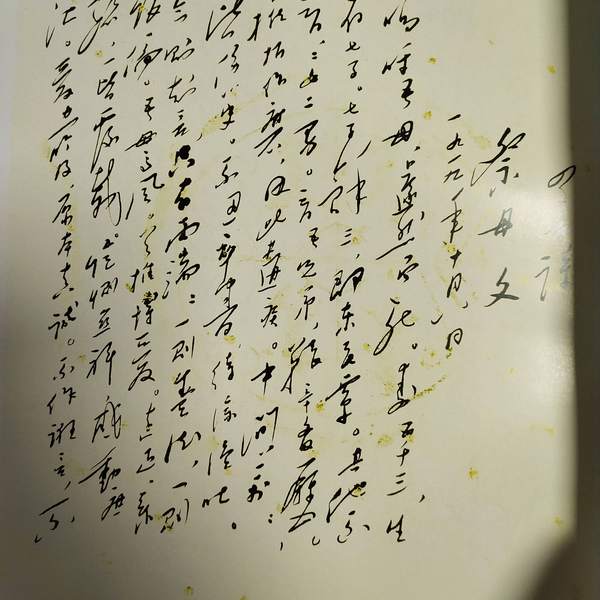 祭母文
一九一九年十月八日
呜呼吾母，遽然而死。寿五十三，生
有七子。七子余三，即东民覃。其他不
育，二女二男。育吾兄弟，艰辛备历。
摧折作磨，因此遘疾。中间万万：
皆伤心史。不忍卒书，待徐温吐。
今则欲言，只有两端：一则盛德，一则
恨偏。吾母高风，首推博爱。远近亲
疏，一皆覆载。恺恻慈祥，感动庶
汇。爱力所及，原本真诚。不作诳言，不